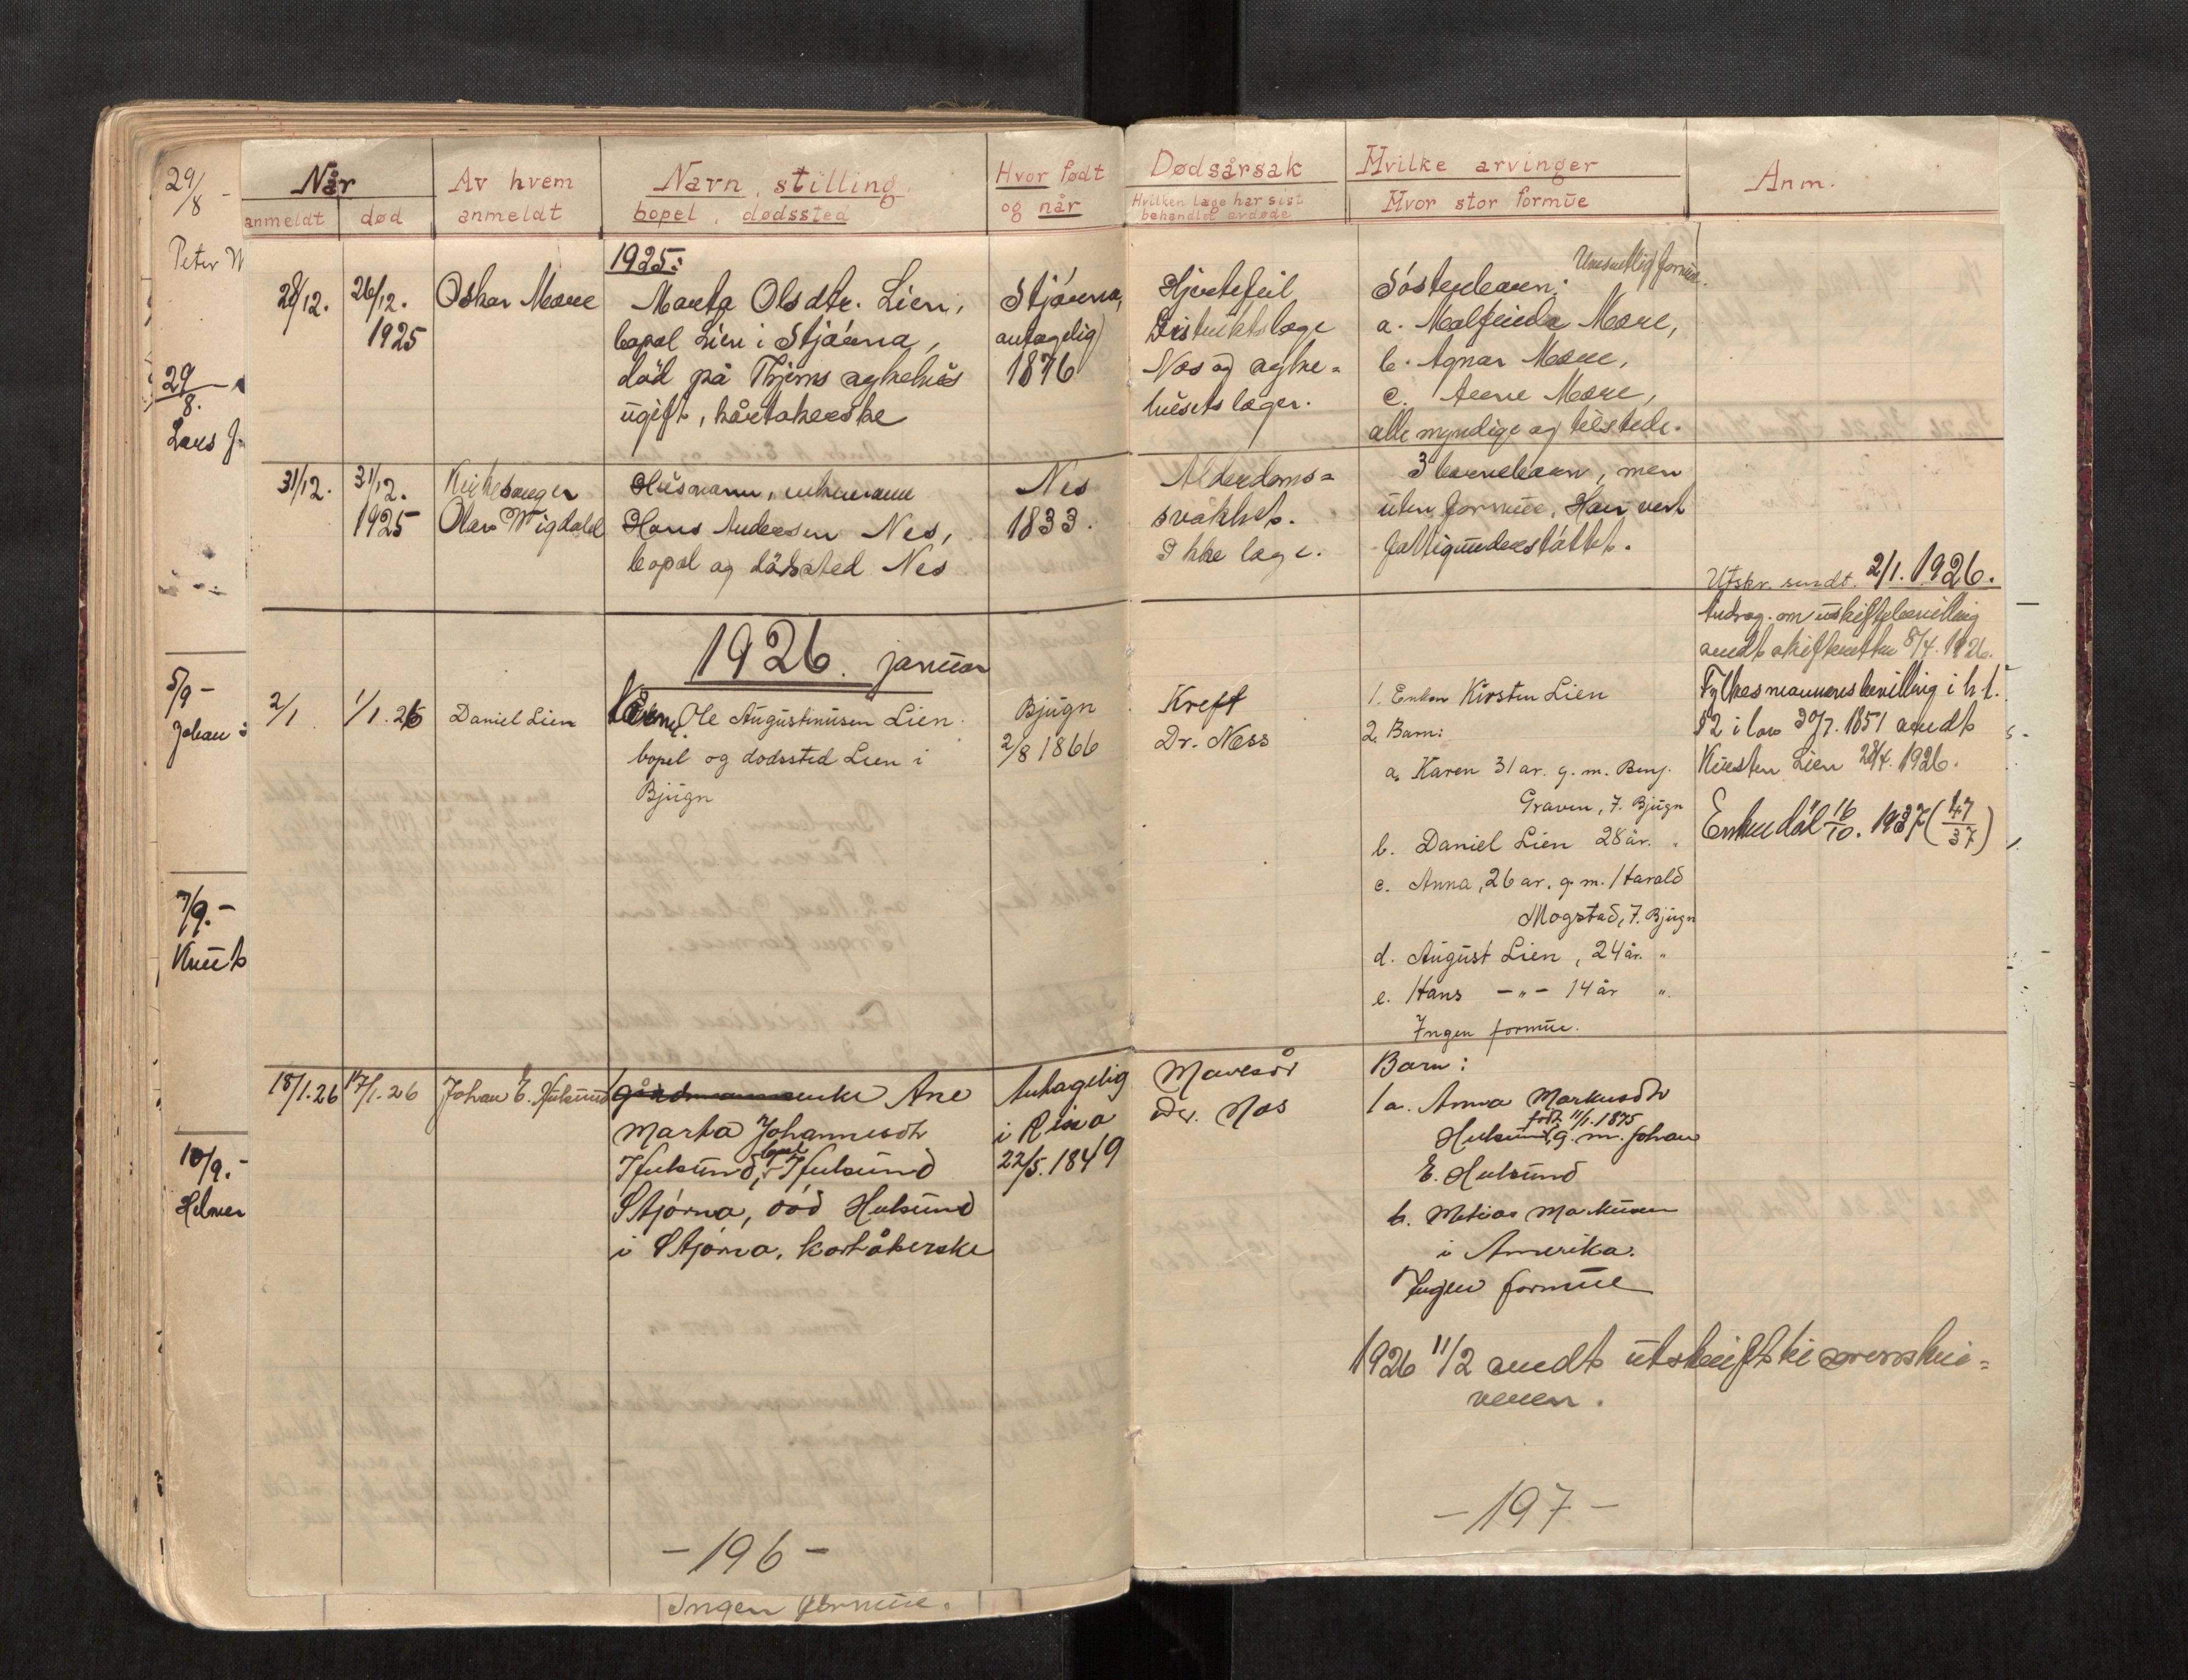 29/8 -
Peter
29/8.
Lars
5/9 -
Johan
7/9. -
Knut
10/9. -
Helmer
Når
anmeldt
død
Av hvem
anmeldt
Navn, stilling,
bopel, dødssted
Hvor født
og når
1925:
28/12.
26/12.
1925
Oskar Mære
Marta Olsdtr. Lien,
bopel Lien i Stjørna,
død på Trhjems sykehus
ugift, kårtakerske
Stjørna,
antagelig
1876
31/12.
31/12.
1925
Kirkesanger
Olav Wigdahl
Husmann, enkemann
Hans Andersen Nes,
bopel og dødssted Nes
Nes
1833.
1926. januar
2/1.
1/1.26
Daniel Lien
Ole Augustinusen Lien.
bopel og dødssted Lien i
Bjugn
Bjugn
2/8 1866
18/1.26
17/1.26
Johan E. Hulsund
enke Ane
Marta Johannesdtr
Hulsund, bopel Hulsund
Stjørna, død Hulsund
i Stjørna, kårtåkerske
Antagelig
i Rissa
22/5.1849
- 196 -
Ingen formue.
Dødsårsak
Hvilken læge har sist
behandlet avdøde
Hvilke arvinger
Hvor stor formue
Anm.
Hjertefeil
Distriktslæge
Næs og syke=
husets læger.
Uvesentlig formue.
Søsterbarn:
a. Malfrida Mære,
b. Agnar Mære,
c. Arne Mære,
alle myndige og tilstede.
Alderdoms=
svakhet.
Ikke læge.
3 barnebarn, men
uten formue. Han vert
fattigunderstøttet.
Utskr. sendt. 2/1. 1926.
Andrag. om uskiftebevilling
sendt skifteretten 8/4. 1926.
Fylkesmannens bevilling i h.t.
§2 i lov 30/7. 1851 sendt
Kirsten Lien 28/4. 1926.
Enken død 16/10. 1937 (47/37)
Kreft
Dr. Næss
1. Enken Kirsten Lien
2. Barn:
a. Karen 31 ar. g. m. Benj.
Graven, 7. Bjugn
b. Daniel Lien 28 år. "
c. Anna, 26 ar. g. m. Harald
Mogstad, 7. Bjugn
d. August Lien, 24 år. "
e. Hans - " - 14 år "
Ingen formue.
Mavesår
Dr. Næs
Barn:
1a. Anna Markusdtr
født 11/1.1875
Hulsund, g. m. Johan
E. Hulsund
b. Matias Markusen
i Amerika.
Ingen formue
1926 11/2 sendt utskrift til sorenskri=
veren.
- 197 -